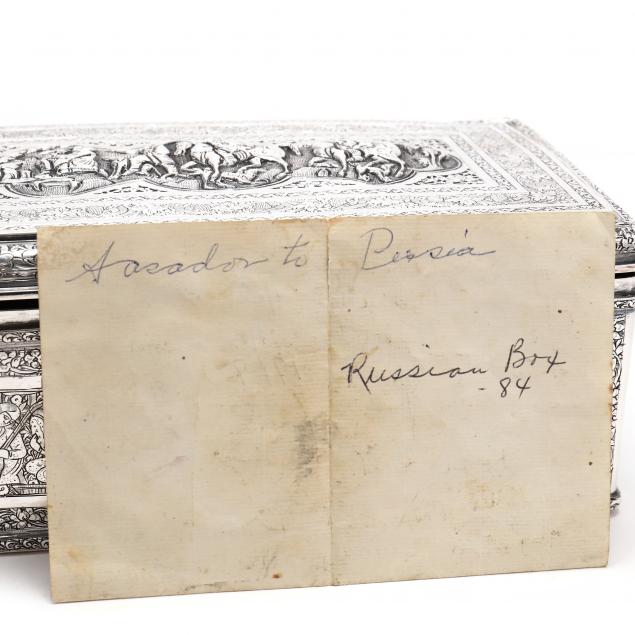 Aasador to Persia
Russian Box
-84